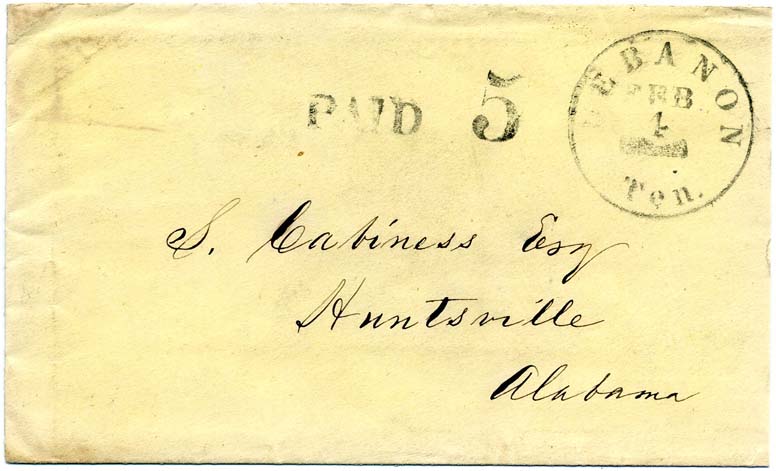 PAID 5
LEBANON
FEB
4
Ten.
S. Cabiness Esq
Huntsville
Alabama